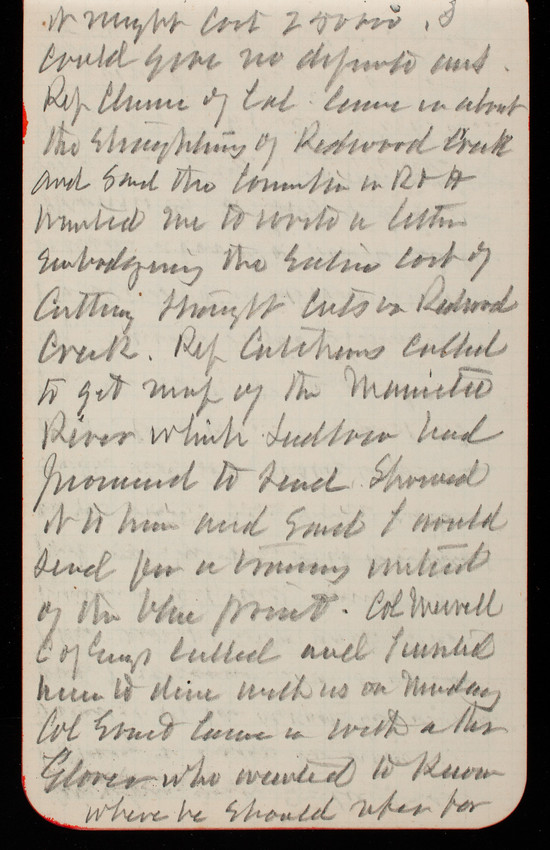 it might cost 25000. I
could give no definite ans.
Rep Clunie of Cal. came in about
the Straightening of Redwood Creek
and said the Committee on R & H
wanted me to write a letter
embodying the entire cost of
Cutting straight cuts in Redwood
Creek. Rep Cutcheon called
to get map of the Manistee
River which Ludlow had
promised to send. Showed
it to him and said I would
send for a tracing instead
of the blue print. Col Merrill
C of Engs called and I invited
him to dine with us on Monday
Col came in with a Mr
Glover who wanted to know
where he should